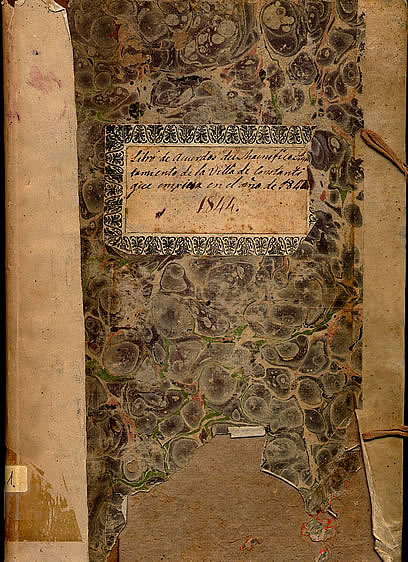 Libro de Acuerdos del Magnifico Ayun
tamiento de la Villa de Constantí
qᵉ empieza en el año de 1844
1844.
1